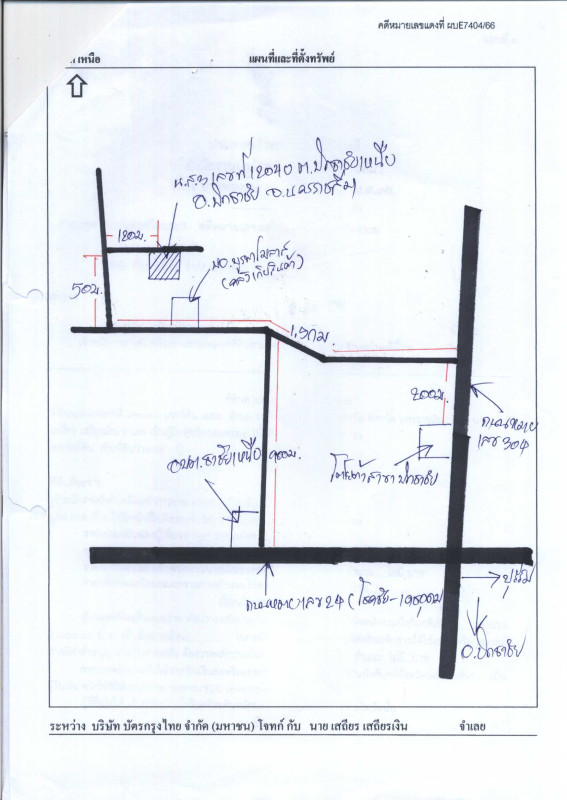 คดีหมายเลขแดงที่ ผบE7404/66
เหนือ
แผนที่และที่ตั้งทรัพย์
น.ส.๓ เลขที่ 12040 ต.ปักธงชัยเหนือ
อ.ปักธงชัย จ.นครราชสีมา
120ม.
50ม.
(หลัง เก็บสินค้า)
1.5กม.
200ม.
ถนนหมายเลข 304
อบต.ธงชัยเหนือ
900ม.
โตโยต้าสาขา ปักธงชัย
ถนนหมายเลข 24 (โชคชัย-
อ.ปักธงชัย
ระหว่าง บริษัท บัตรกรุงไทย จำกัด (มหาชน) โจทก์ กับ นาย เสถียร เสถียรเงิน จำเลย